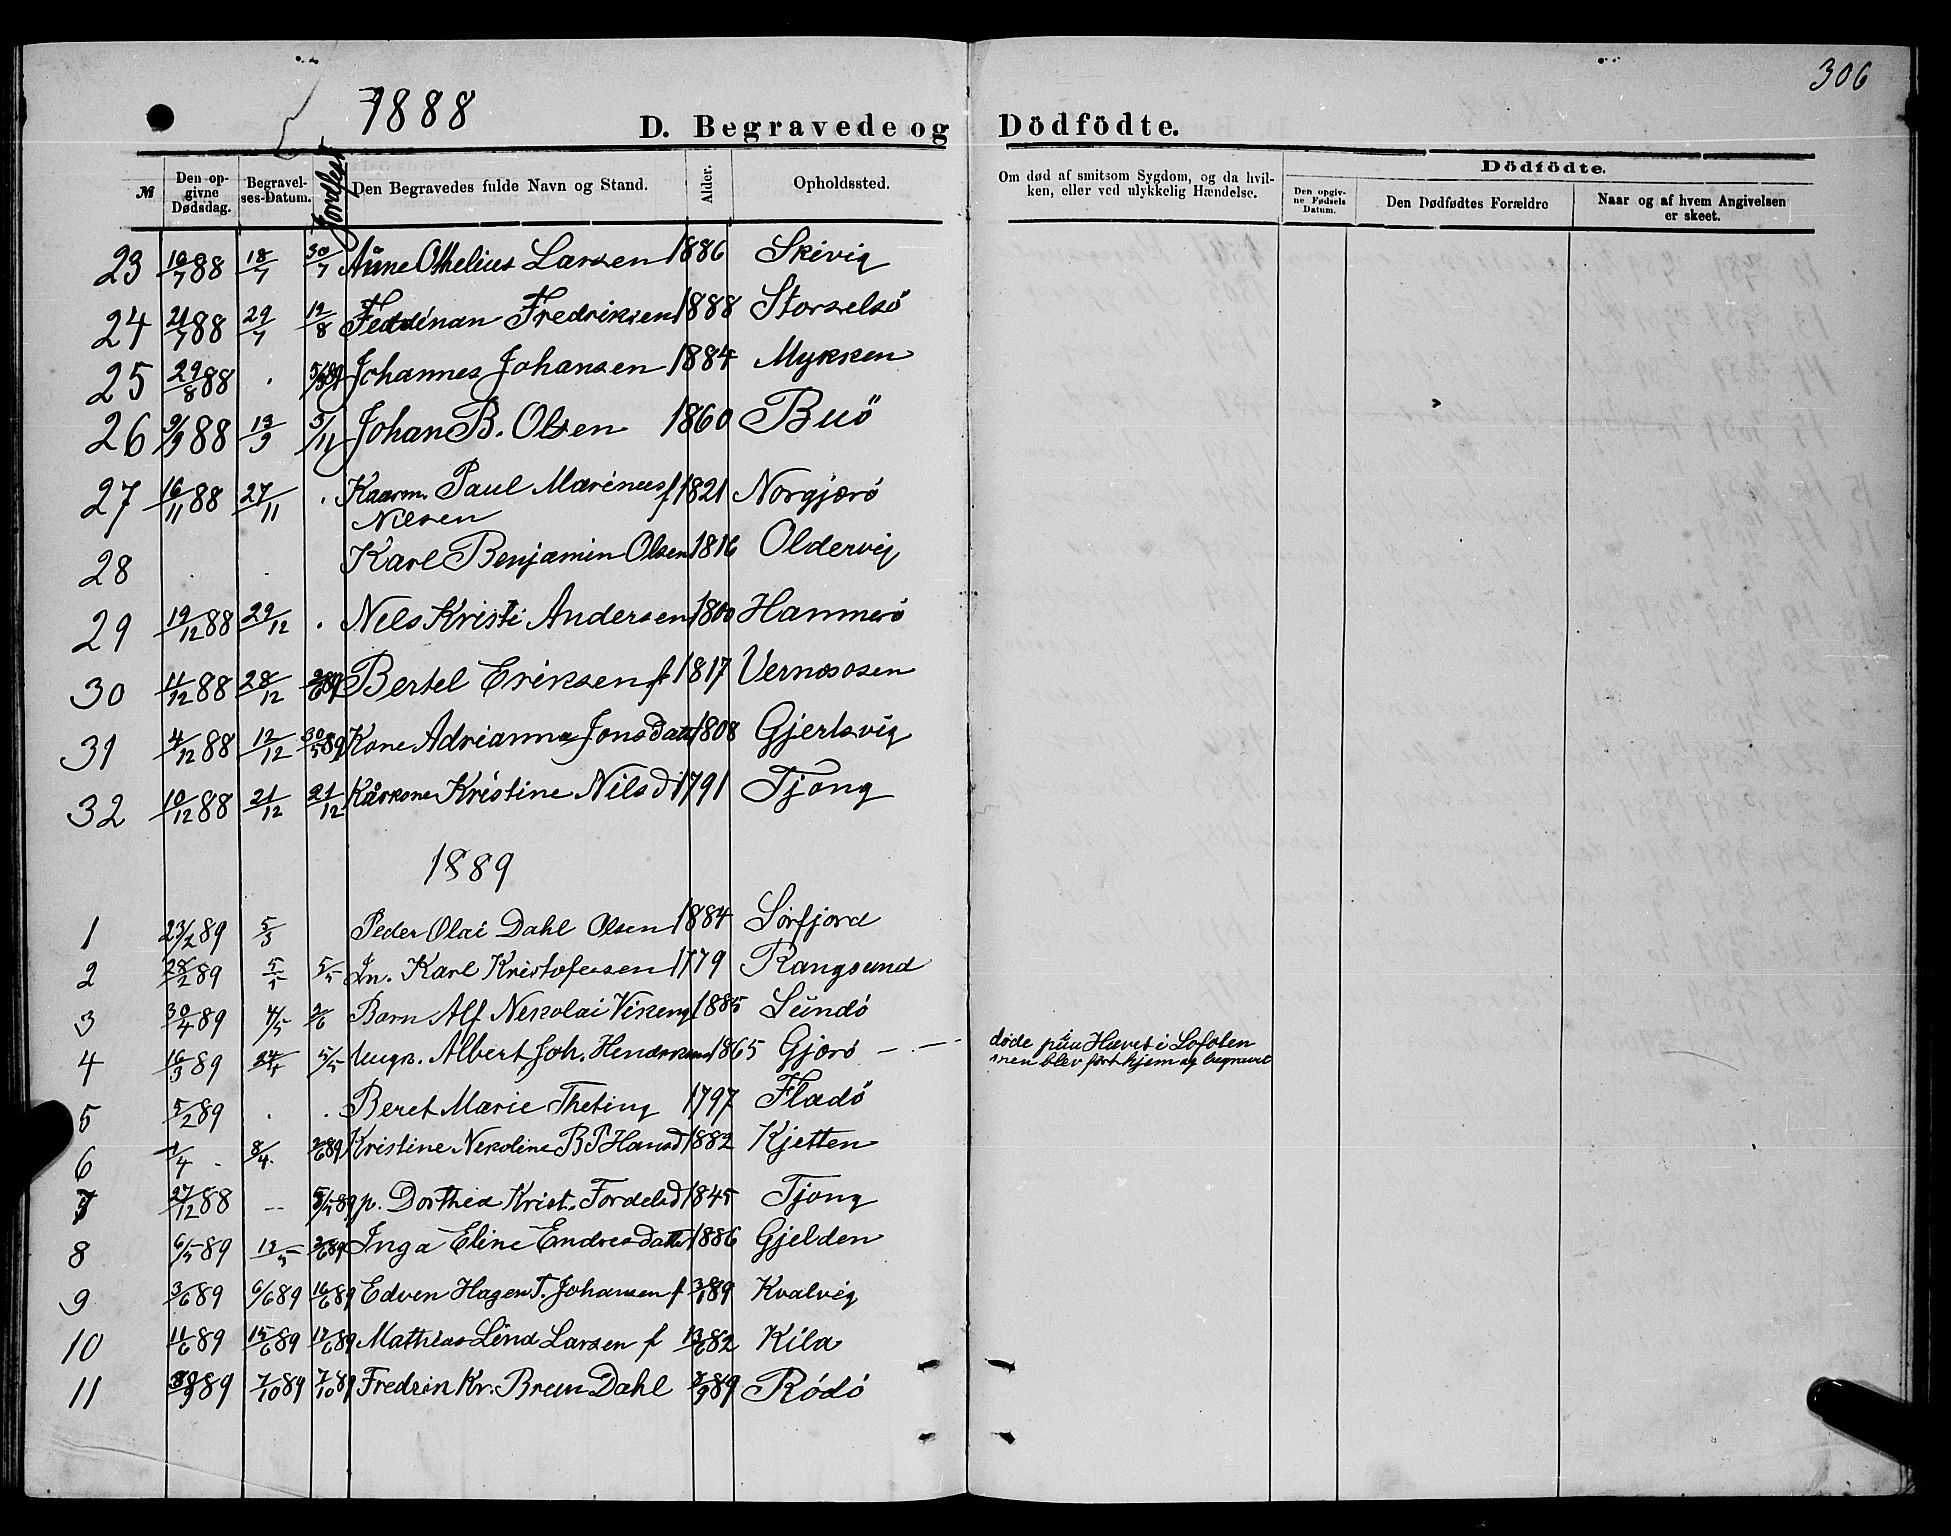 306
1888
D. Begravede og Dödfödte.
№ Den opgivne Dødsdag. Begravelses-Datum. Jordfest Den Begravedes fulde Navn og Stand. Alder. Opholdssted. Om død af smitsom Sygdom, og da hvilken, eller ved ulykkelig Hændelse. Dödfödte. Den opgivne Fødsels Datum. Den Dødfødtes Forældre Naar og af hvem Angivelsen er skeet.
23 10/7 88 18/7 30/7 Anne Othelius Larsen 1886 Skivig
24 21/7 88 29/7 12/8 Ferdinan Fredriksen 1888 Storselsö
25 29/8 88 . Johannes Johansen 1884 Mykken
26 9/9 88 13/9 3/11 Johan B. Olsen 1860 Buö
27 16/11 88 27/11 . Kaarm. Paul Marinus f 1821 Norgjærö
Nilsen
28 . . Karl Benjamin Olsen 1816 Oldervig
29 19/12 88 29/12 . Nils Kristi Andersen 1800 Hammerö
30 11/12 88 28/12 2/6 89 Bertel Eriksen f 1817 Vernesosen
31 4/12 88 12/12 30/5 89 Kone Adrianna Jonsdatt 1808 Gjertsvig
32 10/12 88 21/12 21/12 Kårkone Kristine Nilsd 1791 Tjong
1889
1 23/2 89 5/3 Peder Olai Dahl Olsen 1884 Sörfjord
2 28/2 89 5/5 5/5 In. Karl Kristofersen 1779 Rangsund
3 30/4 89 4/5 2/6 Barn Alf Nikolai Viking 1885 Sundö
4 16/3 89 24/4 5/5 Ungk. Albert Joh. Hendriksen 1865 Gjærö - . - døde paa Havet i Lofoten
men blev ført hjem og begravet
5 5/2 89 . . Beret Marie Theting 1797 Fladö
6 1/4 . 8/4. 2/6 89 Kristine Nikoline B P Hansd 1882 Kjetten
7 27/12 88 -- 5/5 89 p. Dorthea Krist. Fordelsd 1845 Tjong
8 6/5 89 12/5 2/6 89 Inga Eline Endresdatter 1886 Gjelden
9 3/6 89 6/6 89 16/6 89 Edven Hagen T. Johansen f 3/1 89 Kvalvig
10 11/6 89 15/6 89 17/6 89 Mathias Lind Larsen f 13/6 82 Kila
11 89 7/10 89 7/10 89 Fredrin Kr. Bruun Dahl 2/9 89 Rödö